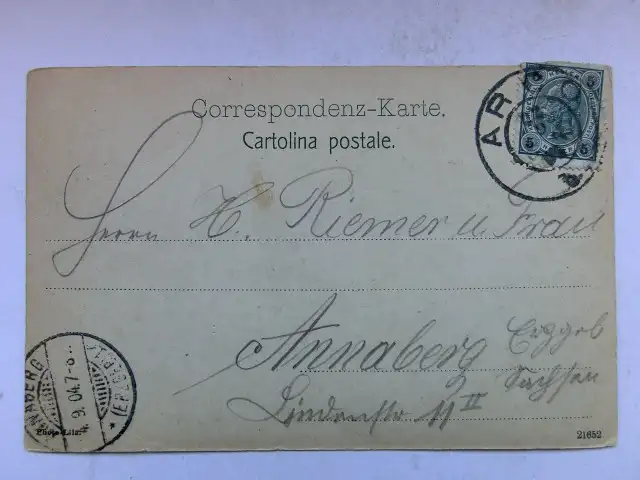 Correspondenz-Karte.
Cartolina postale.
5 5
5 5
AR
Herrn H. Riemer u. Frau
Annaberg Erzgeb
Sachsen
Lindenstr 11 II
ANNABERG
9.04.7-8
(ERZGEB.)
21652